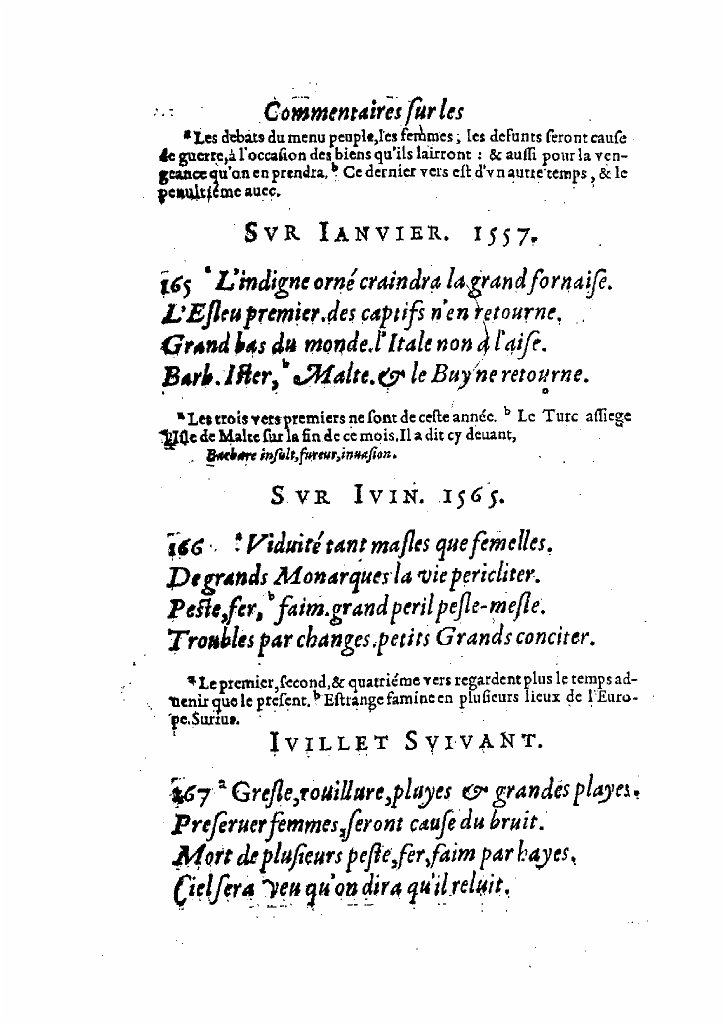 Commentaires ſur les
ᵃ Les debats du menu peuple, les femmes; les defunts ſeront cauſe
de guerre, à l'occaſion des biens qu'ils lairront : & auſſi pour la ven-
geance qu'on en prendra. ᵇ Ce dernier vers eſt d'vn autre temps, & le
penultiéme auec.
SVR IANVIER. 1557.
165 ᵃ L'indigne orné craindra la grand fornaiſe.
L'Eſleu premier. des captifs n'en retourne.
Grand bas du monde. l'Itale non à l'aiſe.
Barb. Iſter, ᵇ Malte. & le Buy ne retourne.
ᵃ Les trois vers premiers ne ſont de ceſte année. ᵇ Le Turc aſſiege
l'Iſle de Malte ſur la fin de ce mois. Il a dit cy deuant,
Barbare inſult, fureur, inuaſion.
SVR IVIN. 1565.
166 ᵃ Viduité tant maſles que femelles.
De grands Monarques la vie pericliter.
Peſte, fer, ᵇ faim. grand peril peſle-meſle.
Troubles par changes. petits Grands conciter.
ᵃ Le premier, ſecond, & quatriéme vers regardent plus le temps ad-
uenir que le preſent. ᵇ Eſtrange famine en pluſieurs lieux de l'Euro-
pe. Surius.
IVILLET SVIVANT.
167 ᵃ Greſle, rouillure, pluyes & grandes playes.
Preſeruer femmes, ſeront cauſe du bruit.
Mort de pluſieurs peſte, fer, faim par hayes.
Ciel ſera veu qu'on dira qu'il reluit.